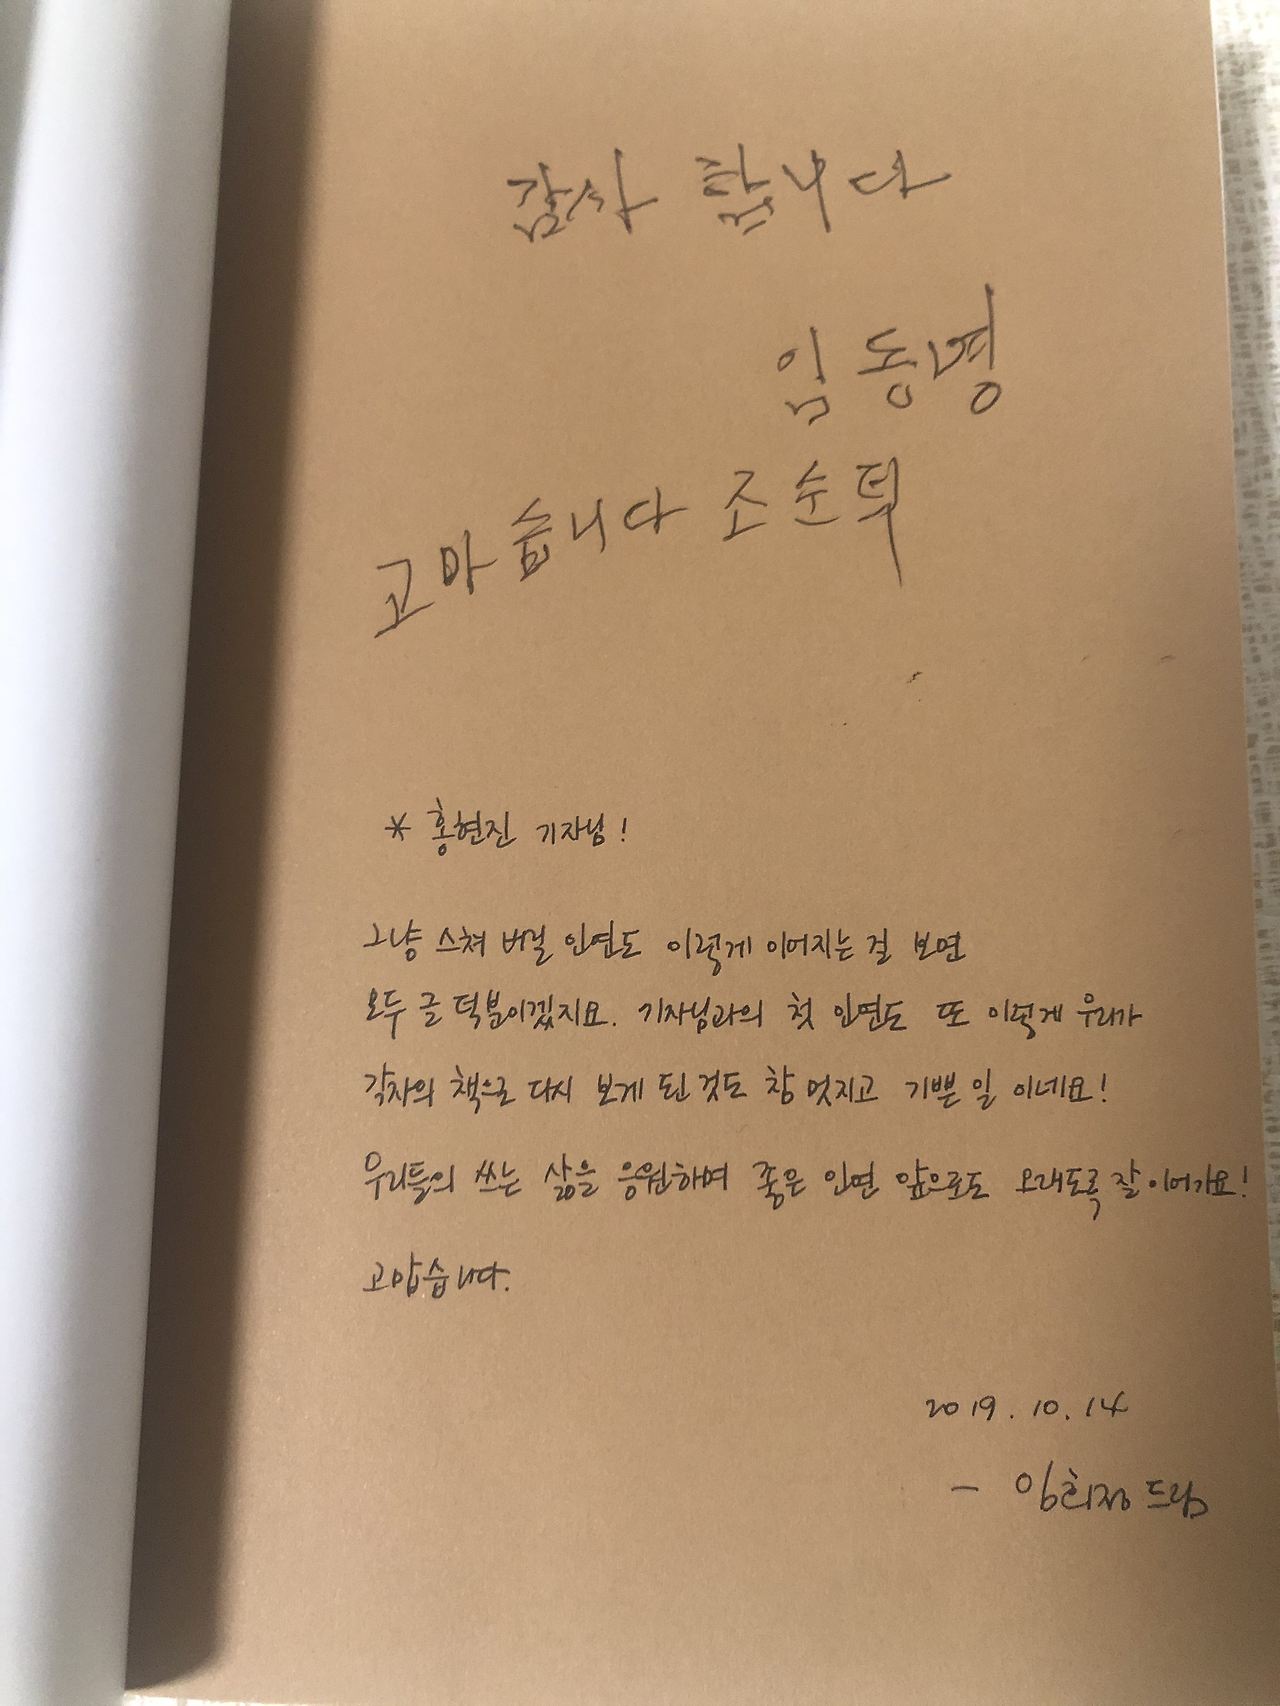 감사 합니다
임동명
고마습니다 조순덕
* 홍현진 기자님!
그냥 스쳐 버릴 인연도 이렇게 이어지는 걸 보면
모두 글 덕분이겠지요. 기자님과의 첫 인연도 또 이렇게 우리가
각자의 책으로 다시 보게 된 것도 참 멋지고 기쁜 일 이네요!
우리들의 쓰는 삶을 응원하며 좋은 인연 앞으로도 오래도록 잘 이어가요!
고맙습니다.
2019. 10. 14
- 임희정 드림